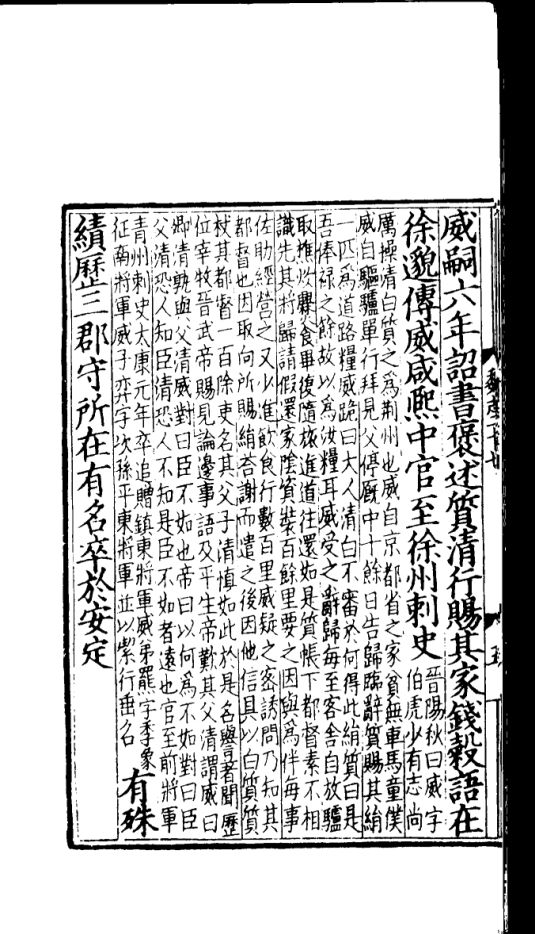 威嗣六年詔書褒述質清行賜其家錢穀語在
徐邈傳威咸熙中官至徐州刺史
晉陽秋曰威字
伯虎少有志尚
厲操清白質之為荊州也威自京都省之家貧無車馬童僕
威自驅驢單行拜見父停廐中十餘日告歸臨辭質賜其絹
一匹為道路糧威跪曰大人清白不審於何得此絹質曰是
吾俸祿之餘故以為汝糧耳威受之辭歸每至客舍自放驢
取樵炊爨食畢復隨旅進道往還如是質帳下都督素不相
識先其將歸請假還家陰資裝百餘里要之因與為伴每事
佐助經營之又少進飲食行數百里威疑之密誘問乃知其
都督也因取向所賜絹荅謝而遣之後因他信具以白質質
杖其都督一百除吏名其父子清慎如此於是名譽著聞歷
位宰牧晉武帝賜見論邊事語及平生帝歎其父清謂威曰
卿清孰與父清威對曰臣不如也帝曰以何為不如對曰臣
父清恐人知臣清恐人不知是臣不如者遠也官至前將軍
青州刺史太康元年卒追贈鎮東將軍威弟羆字季象
征南將軍威子弈字次孫平東將軍並以絜行垂名
有殊
績歷三郡守所在有名卒於安定